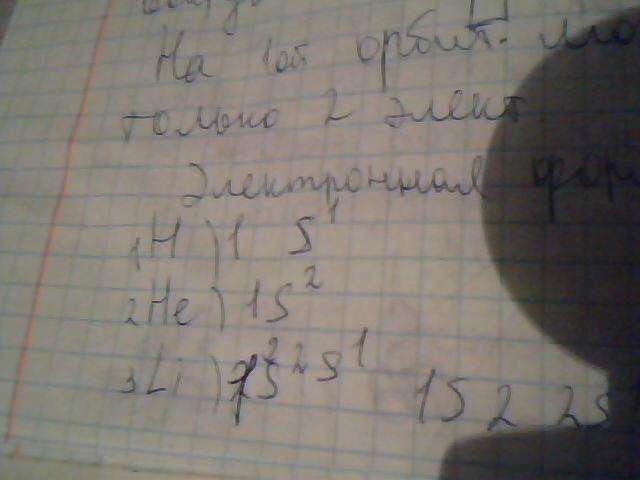 На 1ой орбит. мо
только 2 элект
Электронная фор
₁H ) 1 S¹
₂He ) 1S²
₃Li ) 1S² 2S¹ 1S 2 2S